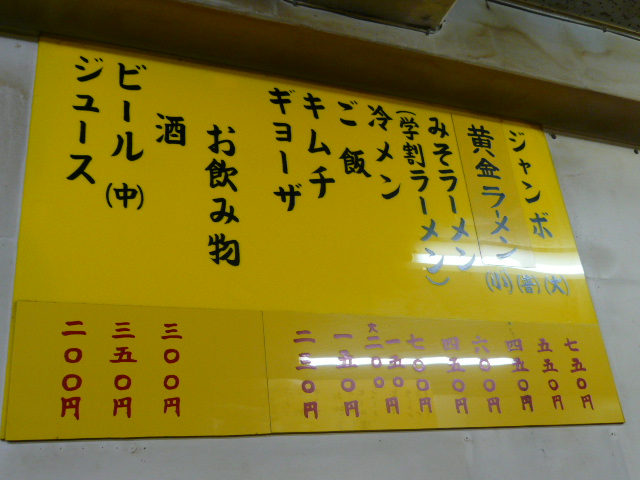 ジャンボ(大)
(普)
黄金ラーメン(小)
みそラーメン
(学割ラーメン)
冷メン
ご飯
キムチ
ギョーザ
お飲み物
酒
ビール(中)
ジュース
七五〇円
五五〇円
四五〇円
六〇〇円
四五〇円
七〇〇円
一五〇
大二〇〇
一五〇円
二三〇円
三〇〇円
三五〇円
二〇〇円